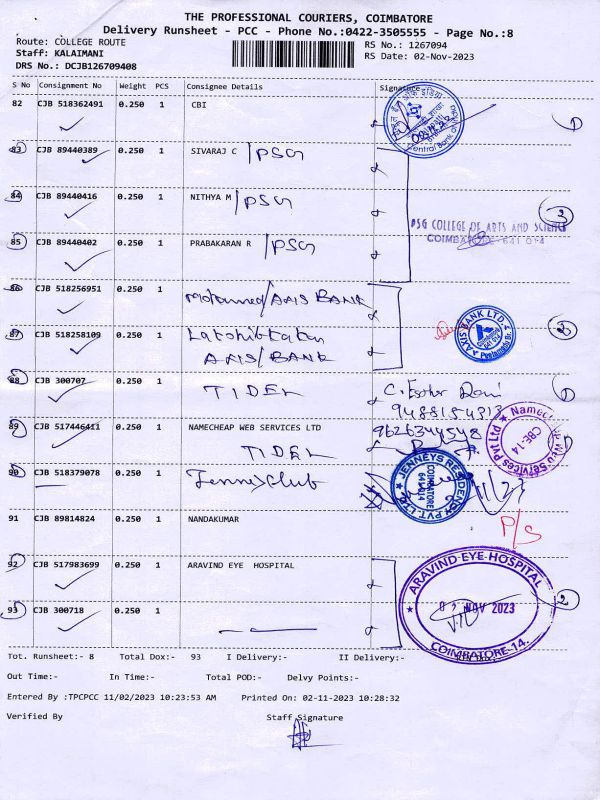 THE PROFESSIONAL COURIERS, COIMBATORE
Delivery Runsheet - PCC - Phone No.:0422-3505555 - Page No.:8
Route: COLLEGE ROUTE
RS No.: 1267094
Staff: KALAIMANI
RS Date: 02-Nov-2023
DRS No.: DCJB126709408
S No Consignment No Weight PCS Consignee Details Signature
82 CJB 518362491 0.250 1 CBI
83 CJB 89440389 0.250 1 SIVARAJ C / PSG
84 CJB 89440416 0.250 1 NITHYA M / PSG
3
PSG COLLEGE OF ARTS AND SCIENCE
COIMBATORE - 641 014
85 CJB 89440402 0.250 1 PRABAKARAN R / PSG
86 CJB 518256951 0.250 1 Mohammed / AXIS BANK
AXIS BANK LTD.
87 CJB 518258109 0.250 1
AXIS / BANK
88 CJB 300707 0.250 1 TIDEL
9488154813
89 CJB 517446411 0.250 1 NAMECHEAP WEB SERVICES LTD 9626344548
TIDEL
CBE-14
90 CJB 518379078 0.250 1 Jenneys Club
JENNEYS RESIDENCY PVT. LTD
COIMBATORE
641 014
91 CJB 89814824 0.250 1 NANDAKUMAR
P/S
92 CJB 517983699 0.250 1 ARAVIND EYE HOSPITAL
ARAVIND-EYE-HOSPITAL
02 NOV 2023
COIMBATORE-14.
2
93 CJB 300718 0.250 1
Tot. Runsheet:- 8 Total Dox:- 93 I Delivery:- II Delivery:-
Out Time:- In Time:- Total POD:- Delvy Points:-
Entered By :TPCPCC 11/02/2023 10:23:53 AM Printed On: 02-11-2023 10:28:32
Verified By Staff Signature